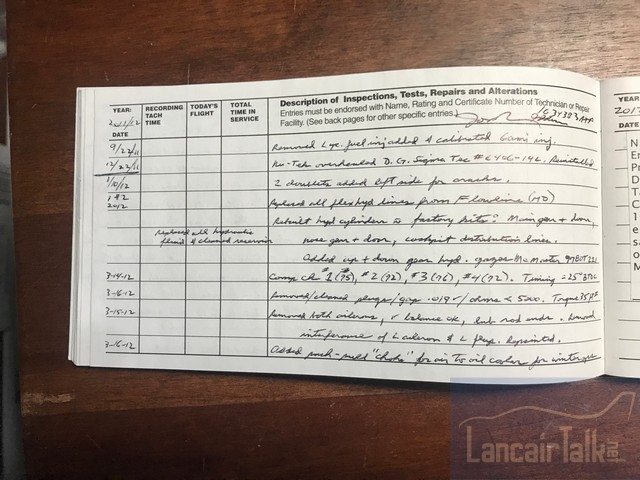 YEAR: RECORDING TODAY'S TOTAL Description of Inspections, Tests, Repairs and Alterations
2011/12 TACH FLIGHT TIME IN Entries must be endorsed with Name, Rating and Certificate Number of Technician or Repair
DATE TIME SERVICE Facility. (See back pages for other specific entries.)
9/22/11 Removed Lyc. fuel inj added & calibrated inj.
12/22/11 overhauled D.G. Sigma Tec #6406-14L. Reinstalled
1/10/12 2 doublers added left side for cracks.
1 & 2 2012 Replaced all flex hyd lines from Flowline
Rebuilt hyd cylinders factory kits: Main gear & door,
Replaced all hydraulic nose gear & door, cockpit distribution lines.
fluid & cleaned reservoir
Added up & down gear hyd. gages McMaster
3-14-12 Comp ck #1 (75), #2 (72), #3 (76), #4 (72). Timing = 25° BTDC
3-16-12 Removed/cleaned plugs/gap .019 / ohms < 5000. Torque 35
3-15-12 Removed both ailerons, balance ok, lube rod ends. Removed
interference of L aileron & L flap. Repainted.
3-16-12 Added "choke" for air to oil cooler for winter
YEAR
201
DATE
LancairTalk.net